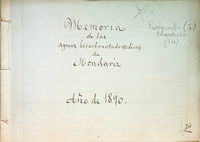 Memoria
de las
aguas bicarbonatado-sódicas
de
Mondariz
Año de 1890.
(2)
(14)